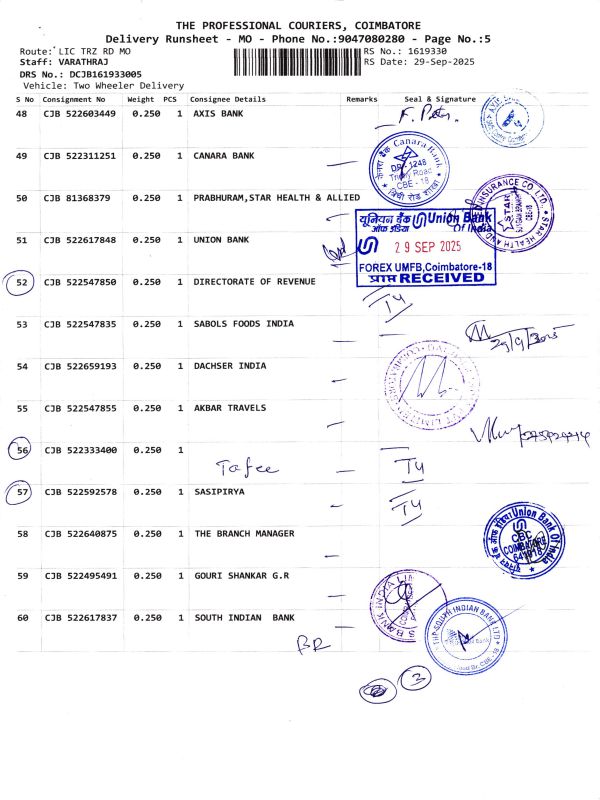 THE PROFESSIONAL COURIERS, COIMBATORE
Delivery Runsheet - MO - Phone No.:9047080280 - Page No.:5
Route: LIC TRZ RD MO
RS No.: 1619330
Staff: VARATHRAJ
RS Date: 29-Sep-2025
DRS No.: DCJB161933005
Vehicle: Two Wheeler Delivery
S No Consignment No Weight PCS Consignee Details Remarks Seal & Signature
48 CJB 522603449 0.250 1 AXIS BANK
F. Peter.
49 CJB 522311251 0.250 1 CANARA BANK
Canara Bank
केनरा बैंक
DP-1248
Trichy Road
CBE - 18
50 CJB 81368379 0.250 1 PRABHURAM,STAR HEALTH & ALLIED
INSURANCE CO LTD.
STAR HEALTH AND
STAR
CBE-18
51 CJB 522617848 0.250 1 UNION BANK
यूनियन बैंक Union Bank
ऑफ इंडिया Of India
29 SEP 2025
FOREX UMFB,Coimbatore-18
प्राप्त RECEIVED
52 CJB 522547850 0.250 1 DIRECTORATE OF REVENUE
T4
53 CJB 522547835 0.250 1 SABOLS FOODS INDIA
54 CJB 522659193 0.250 1 DACHSER INDIA
55 CJB 522547855 0.250 1 AKBAR TRAVELS
56 CJB 522333400 0.250 1
Tafee T4
57 CJB 522592578 0.250 1 SASIPIRYA
T4
58 CJB 522640875 0.250 1 THE BRANCH MANAGER
Union Bank Of India
CBC
COIMBATORE
641018
59 CJB 522495491 0.250 1 GOURI SHANKAR G.R
60 CJB 522617837 0.250 1 SOUTH INDIAN BANK
THE SOUTH INDIAN BANK LTD
BR
3